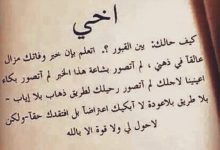 اخي
كيف حالك: بين القبور ؟. اتعلم بإن خبر وفاتك مزال
عالقاً في ذهني , لم أتصور بشاعة هذا الخبر لم أتصور بكاء
اعيننا لاحك لم أتصور رحيلك لطريق ذهاب بلا إياب -
بلا طريق بلاعودة لا أبكيك اعتراضاً بل افتقدك حقاً-ولكن
لاحول لي ولا قوة الا بالله